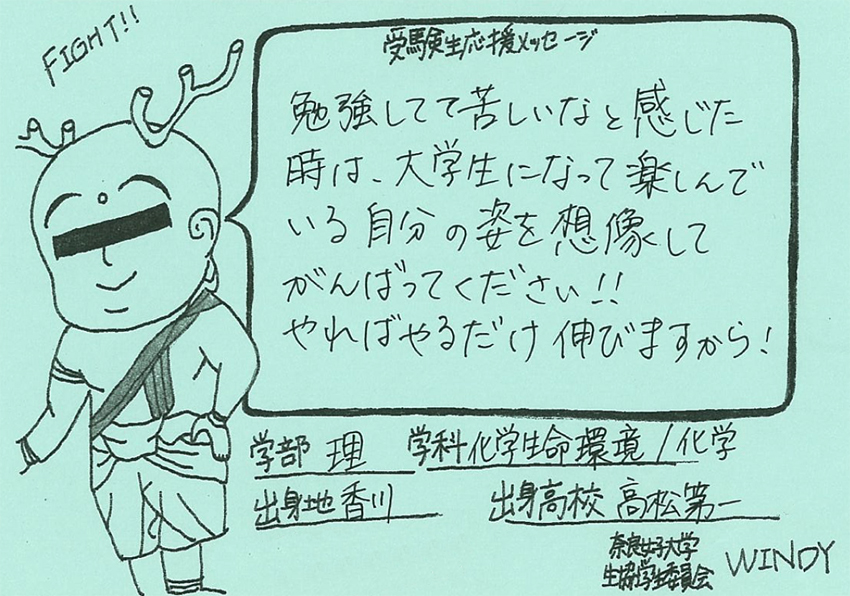 FIGHT!!
受験生応援メッセージ
勉強してて苦しいなと感じた
時は、大学生になって楽しんで
いる自分の姿を想像して
がんばってください!!
やればやるだけ伸びますから!
学部 理 学科 化学生命環境/化学
出身地 香川 出身高校 高松第一
奈良女子大学
生協学生委員会 WINDY